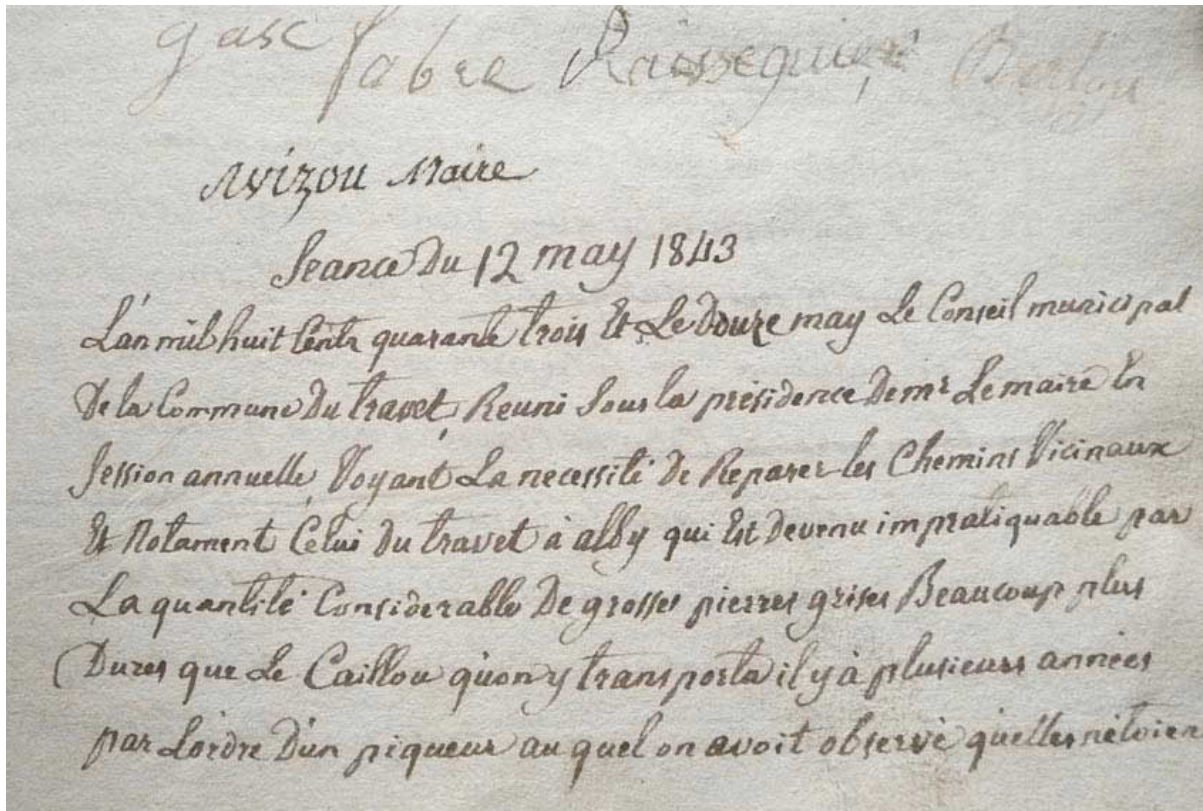 gasc fabre Raisseguier
Avizou Maire
Seance Du 12 may 1843
L'an mil huit Cents quarante trois Et Le Douze may Le Conseil municipal
De la Commune Du travet, Reuni Sous la présidence De mr Le maire En
Session annuelle, Voyant La necessité De Reparer les Chemins Vicinaux
Et Notament Celui Du travet à alby qui Est Devenu impratiquable par
La quantité Considerable De grosses pierres grises Beaucoup plus
Dures que Le Caillou qu'on y transporta il y à plusieurs années
par L'ordre D'un piqueur au quel on avoit observé qu'elles n'étoien